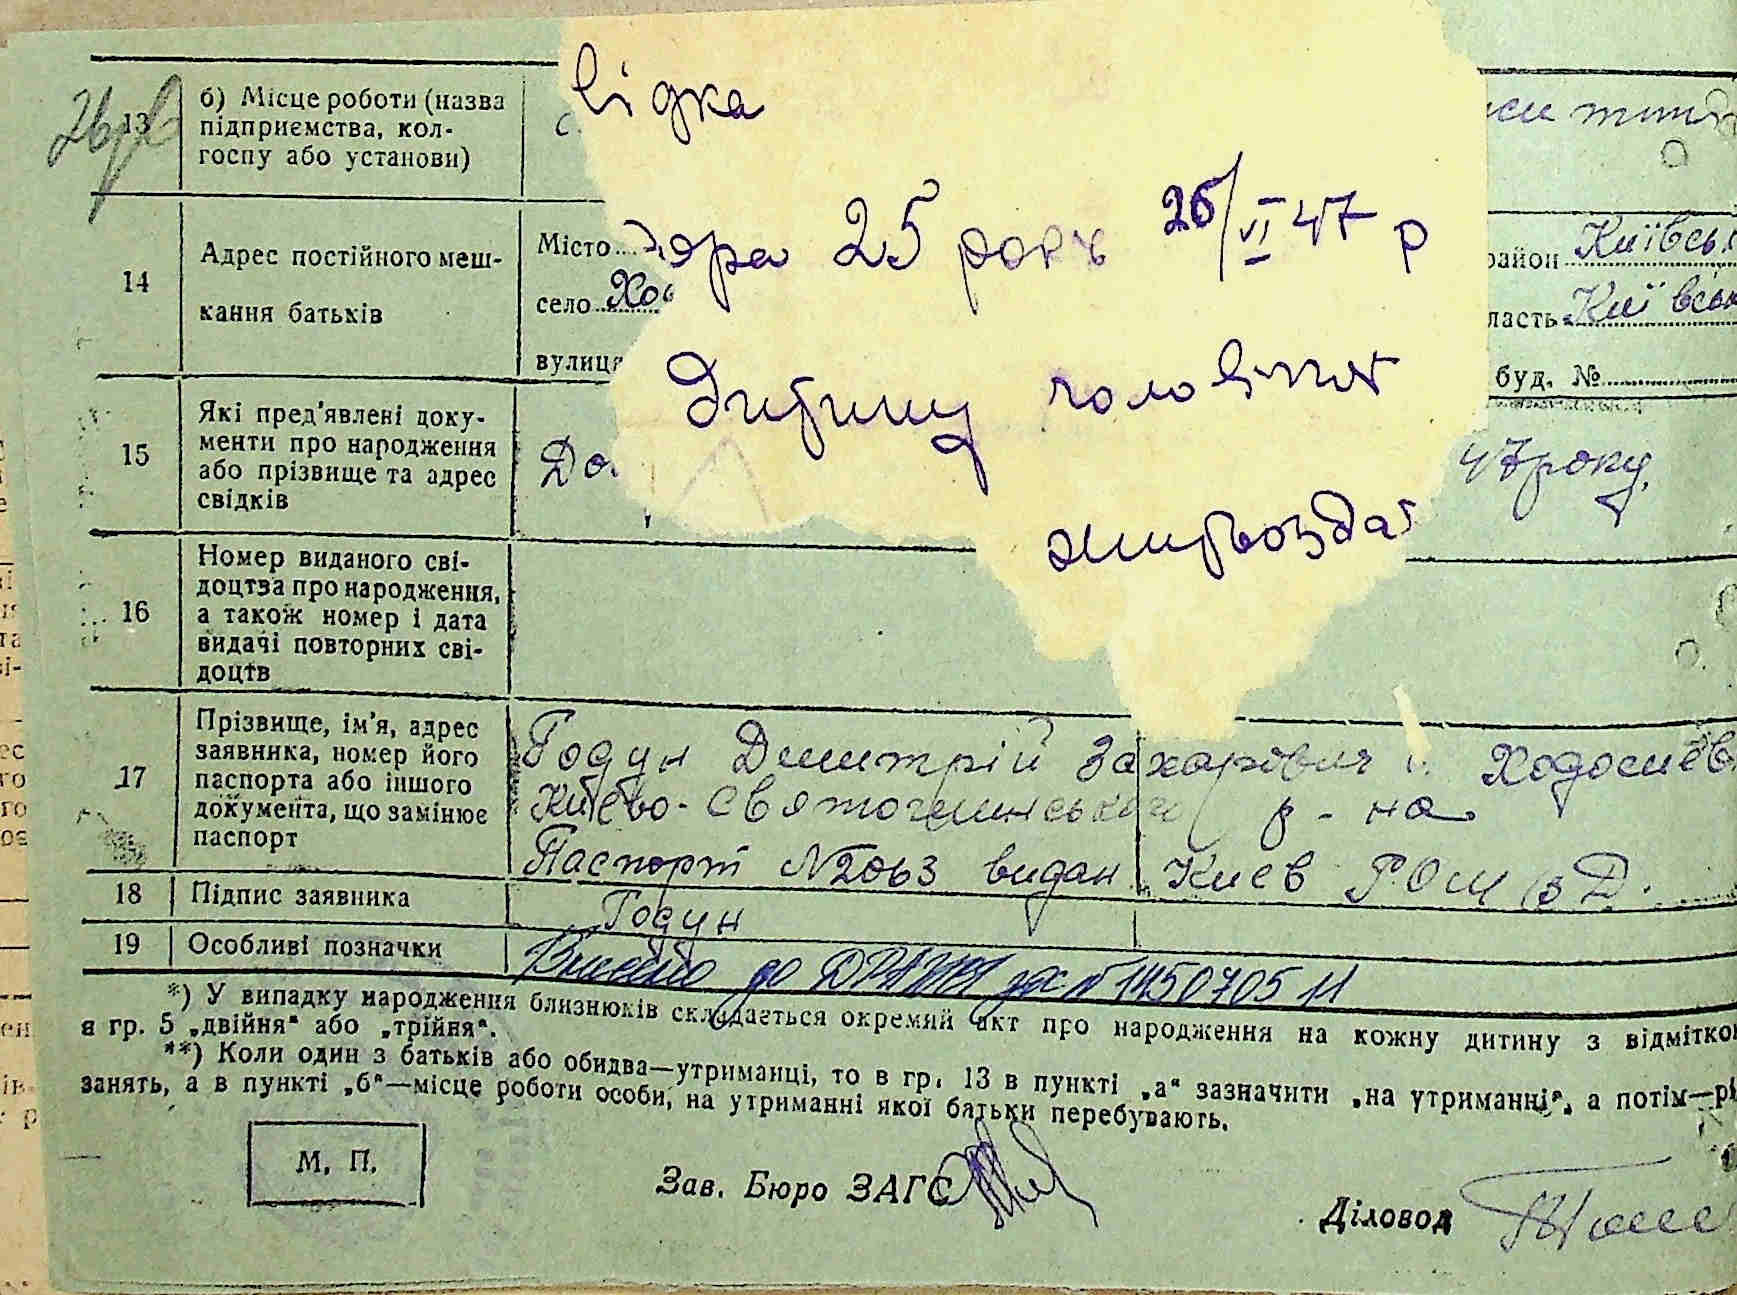 відка
26/VI 47 р
25
Дитину
13
б) Місце роботи (назва
підприємства, кол-
госпу або установи)
14
Адрес постійного меш-
кання батьків
Місто
село Хо
вулиця
район Київськ
ласть Київськ
буд. №
15
Які пред'явлені доку-
менти про народження
або прізвище та адрес
свідків
До
47 року.
16
Номер виданого сві-
доцтва про народження,
а також номер і дата
видачі повторних сві-
доцтв
17
Прізвище, ім'я, адрес
заявника, номер його
паспорта або іншого
документа, що замінює
паспорт
Годун Дмитрій Захарович Ходосиєв
Києво-Святошинського р-на
Паспорт №2063 видан Киев
18
Підпис заявника
Годун
19
Особливі позначки
Внесено до ДРАЦС за №
*) У випадку народження близнюків складається окремий акт про народження на кожну дитину з відмітко
в гр. 5 „двійня“ або „трійня“.
**) Коли один з батьків або обидва—утриманці, то в гр. 13 в пункті „а“ зазначити „на утриманні“, а потім—рі
занять, а в пункті „б“—місце роботи особи, на утриманні якої батьки перебувають.
М. П.
Зав. Бюро ЗАГС
Діловод